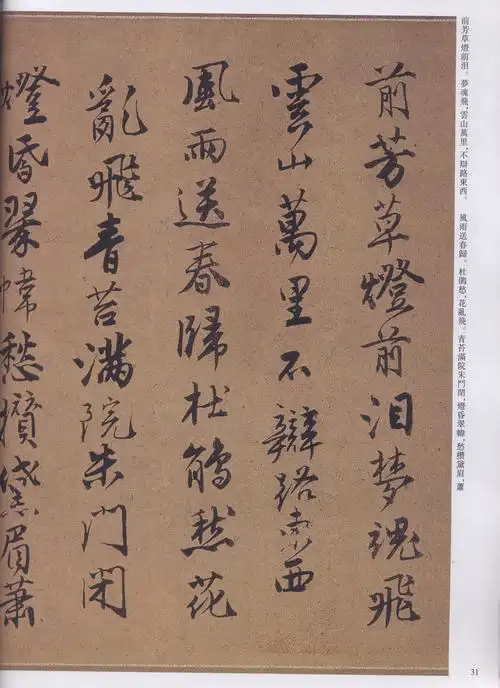 前芳草燈前泪。夢魂飛,雲山萬里,不辯路東西。　風雨送春歸。杜鵑愁,花亂飛。青苔滿院朱門閉,燈昏翠幃,愁攢黛眉,蕭
前芳草燈前泪夢魂飛
雲山萬里不辯路東西
風雨送春歸杜鵑愁花
亂飛青苔滿院朱門閉
燈昏翠幃愁攢黛眉蕭
31